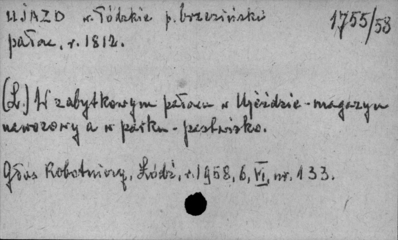 UJAZD w. łódzkie p. brzeziński 1755/58
pałac, r. 1812.
(Z.) W zabytkowym pałacu w Ujeździe - magazyn
nawozowy a w parku - pastwisko.
Głos Robotniczy, Łódź, r. 1958, 6, VI, nr. 133.